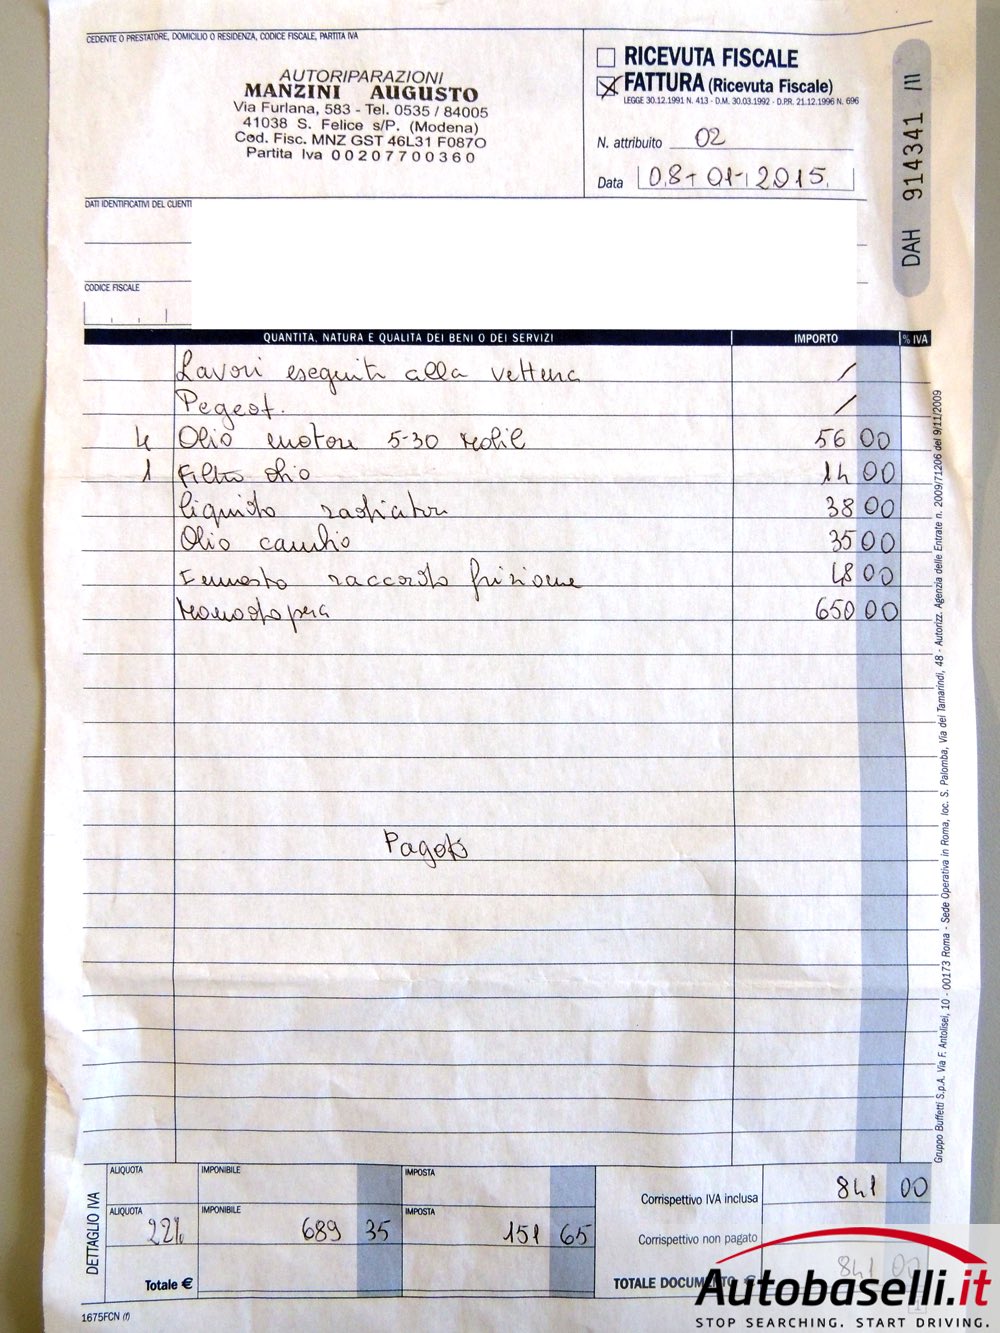 CEDENTE O PRESTATORE, DOMICILIO O RESIDENZA, CODICE FISCALE, PARTITA IVA
AUTORIPARAZIONI
MANZINI AUGUSTO
Via Furlana, 583 - Tel. 0535 / 84005
41038 S. Felice s/P. (Modena)
Cod. Fisc. MNZ GST 46L31 F087O
Partita Iva 00207700360
RICEVUTA FISCALE
FATTURA (Ricevuta Fiscale)
LEGGE 30.12.1991 N. 413 - D.M. 30.03.1992 - D.P.R. 21.12.1996 N. 696
N. attribuito 02
Data 08-01-2015
DAH 914341 /11
DATI IDENTIFICATIVI DEL CLIENT
CODICE FISCALE
QUANTITA, NATURA E QUALITA DEI BENI O DEI SERVIZI IMPORTO % IVA
Lavori eseguiti alla vettura /
Pegeot. /
4 Olio motore 5-30 Mobil 56 00
1 Filtro olio 14 00
liquido radiatore 38 00
Olio cambio 35 00
raccordo frizione 48 00
Manodopera 650 00
Pagato
Gruppo Buffetti S.p.A. Via F. Antolisei, 10 - 00173 Roma - Sede Operativa in Roma, loc. S. Palomba, Via dei Tamarindi, 48 - Autorizz. Agenzia delle Entrate n. 2009/71206 del 9/11/2009
DETTAGLIO IVA
ALIQUOTA IMPONIBILE IMPOSTA
ALIQUOTA IMPONIBILE IMPOSTA
22% 689 35 151 65
Totale €
Corrispettivo IVA inclusa 841 00
Corrispettivo non pagato
TOTALE DOCUMENTO € 841 00
1675FCN (f)
Autobaselli.it
STOP SEARCHING. START DRIVING.